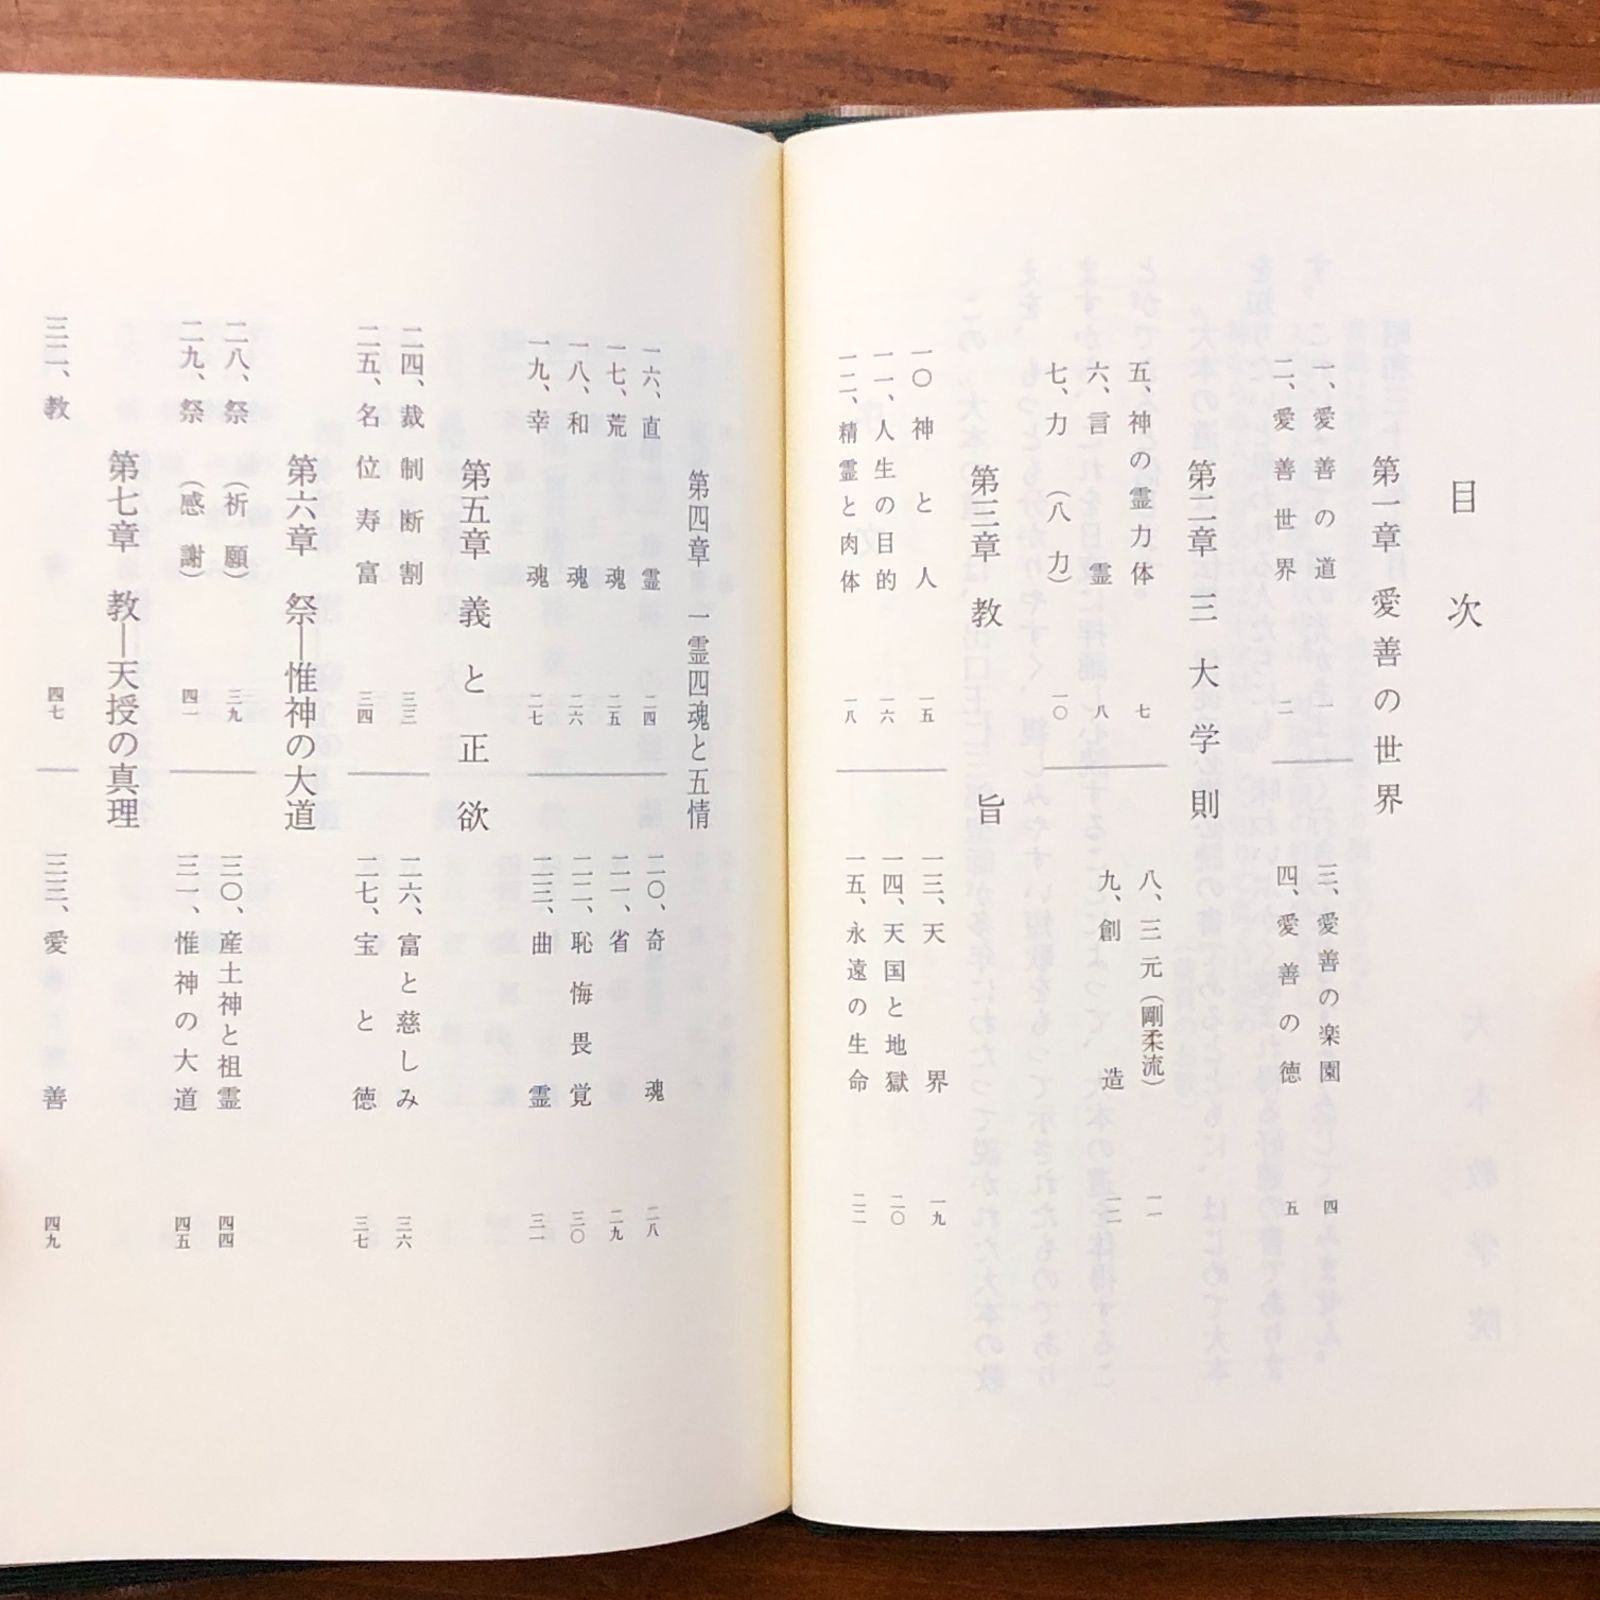 目次
第一章 愛善の世界
一、愛善の道 一
二、愛善世界 二
三、愛善の楽園 四
四、愛善の徳 五
第二章 三大学則
五、神の霊力体 七
六、言霊 八
七、力(八力) 一〇
八、三元(剛柔流) 一一
九、創造 一二
第三章 教旨
一〇神と人 一五
一一、人生の目的 一六
一二、精霊と肉体 一八
一三、天界 一九
一四、天国と地獄 二〇
一五、永遠の生命 二二
第四章 一霊四魂と五情
一六、直霊 二四
一七、荒魂 二五
一八、和魂 二六
一九、幸魂 二七
二〇、奇魂 二八
二一、省 二九
二二、恥悔畏覚 三〇
二三、曲霊 三一
第五章 義と正欲
二四、裁制断割 三三
二五、名位寿富 三四
二六、富と慈しみ 三六
二七、宝と徳 三七
第六章 祭―惟神の大道
二八、祭(祈願) 三九
二九、祭(感謝) 四一
三〇、産土神と祖霊 四四
三一、惟神の大道 四五
第七章 教―天授の真理
三二、教 四七
三三、愛善 四九